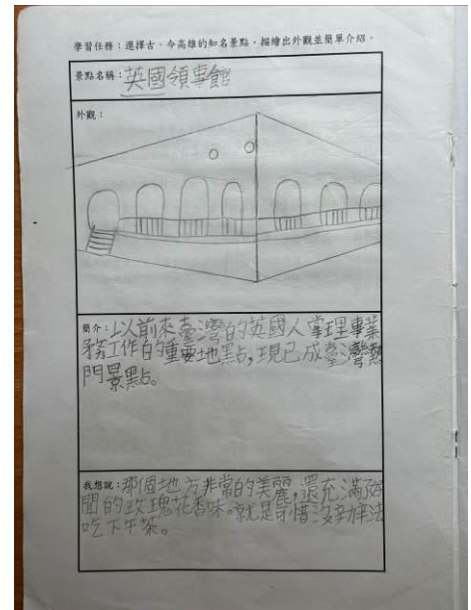 學習任務：選擇古、今高雄的知名景點，描繪出外觀並簡單介紹。
景點名稱：英國領事館
外觀：
簡介：以前來臺灣的英國人掌理事業
務工作的重要地點，現已成臺灣熱
門景點。
我想說：那個地方非常的美麗，還充滿了好
聞的玫瑰花香味。就是可惜沒辦法
吃下午茶。